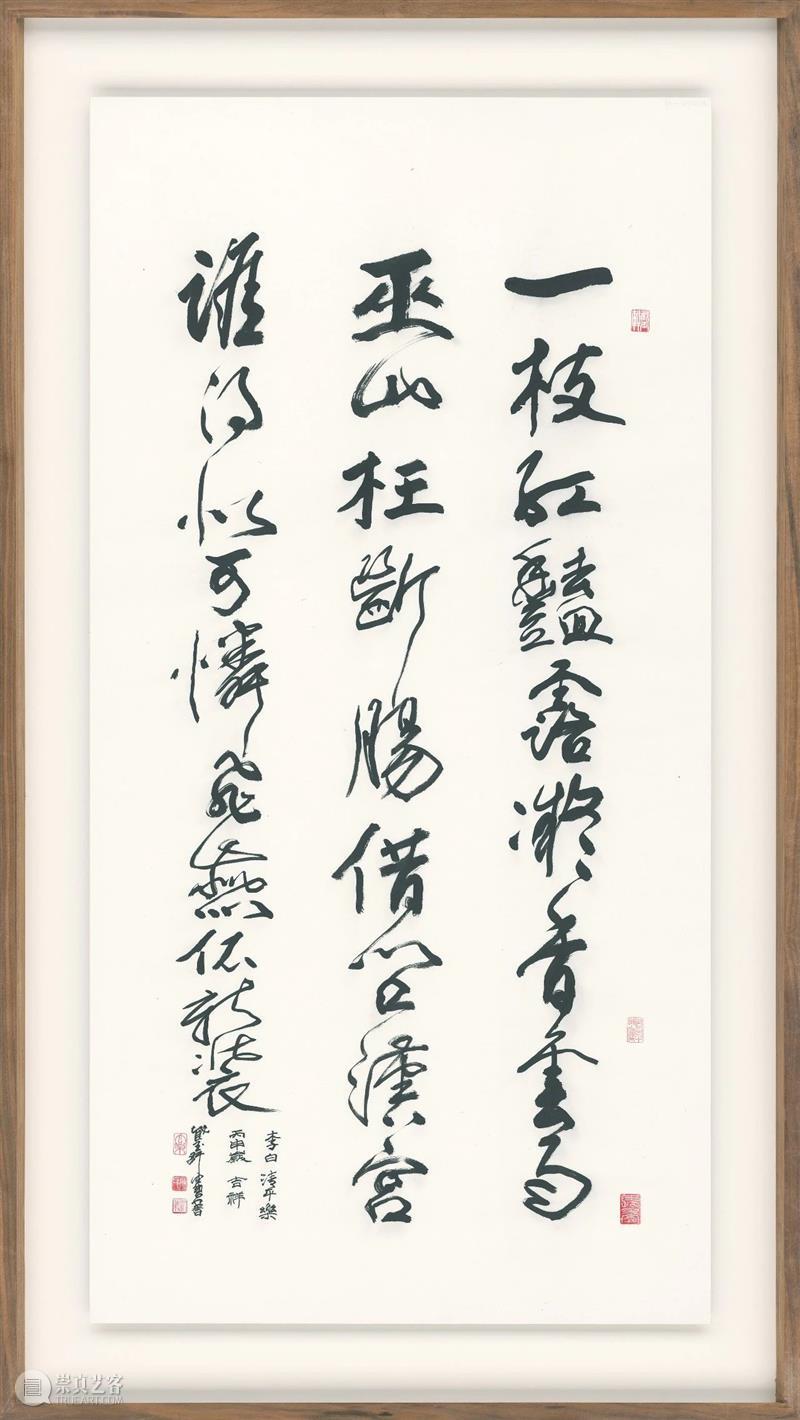 一枝紅豔露凝香雲雨
巫山枉斷腸借問漢宮
誰得似可憐飛燕倚新裝
李白清平樂
丙申歲吉祥
崇真艺客
TRUEART.COM